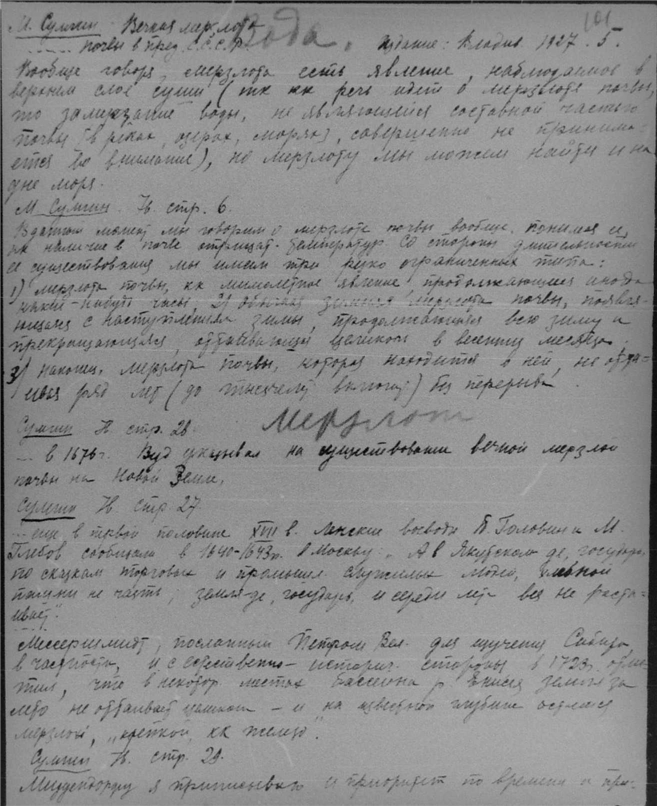 М. Сумгин: Вечная мерзлота 101
почвы в пред. С.С.С.Р. Вода. Издание: Владив. 1927. 5.
Вообще говоря, мерзлота есть явление, наблюдаемое в
верхнем слое суши (тк кк речь идет о мерзлоте почвы,
то замерзание воды, не являющейся составной частью
почвы (в реках, озерах, морях), совершенно не принима-
ется во внимание), но мерзлоту мы можем найти и на
дне моря.
М. Сумгин. Н. стр. 6.
В данный момент мы говорим о мерзлоте почвы вообще, понимая её,
кк наличие в почве отрицат. температур. Со стороны длительности
ее существования мы имеем три резко ограниченных типа:
1) Мерзлота почвы, кк мимолетное явление, продолжающееся иногда
какие-нибудь часы; 2) обычная зимняя мерзлота почвы, появля-
ющаяся с наступлением зимы, продолжающаяся всю зиму и
прекращающаяся, оттаивающая целиком в весенние месяцы
3) наконец, мерзлота почвы, которая находится в ней, не отта-
ивая ряд лет (до тысячелет. включ.) без перерыва.
Мерзлот
Сумгин Н. стр. 28.
... в 1676 г. Вуд указывал на существование вечной мерзлой
почвы на Новой Земле.
Сумгин Н. стр. 27.
... еще в первой половине XVII в. Ленские воеводы П. Головин и М.
Глебов сообщали в 1640-1643 гг. в Москву: "А в Якутском де, государь,
по сказкам торговых и промышл. служилых людей, хлебной
пашни не чаять; земля-де, государь, и середи лета вся не раста-
ивает".
Мессершмидт, посланный Петром Вел. для изучения Сибири,
в частности, и с естественно-историч. стороны в 1723 г. отме-
тил, что в некотор. местах бассейна р. Енисея земля за
лето не оттаивает целиком - и на известной глубине остается
мерзлой, "крепкой, кк железо".
Сумгин Н. стр. 29.
Миддендорфу я приписываю и приоритет по времени и при-